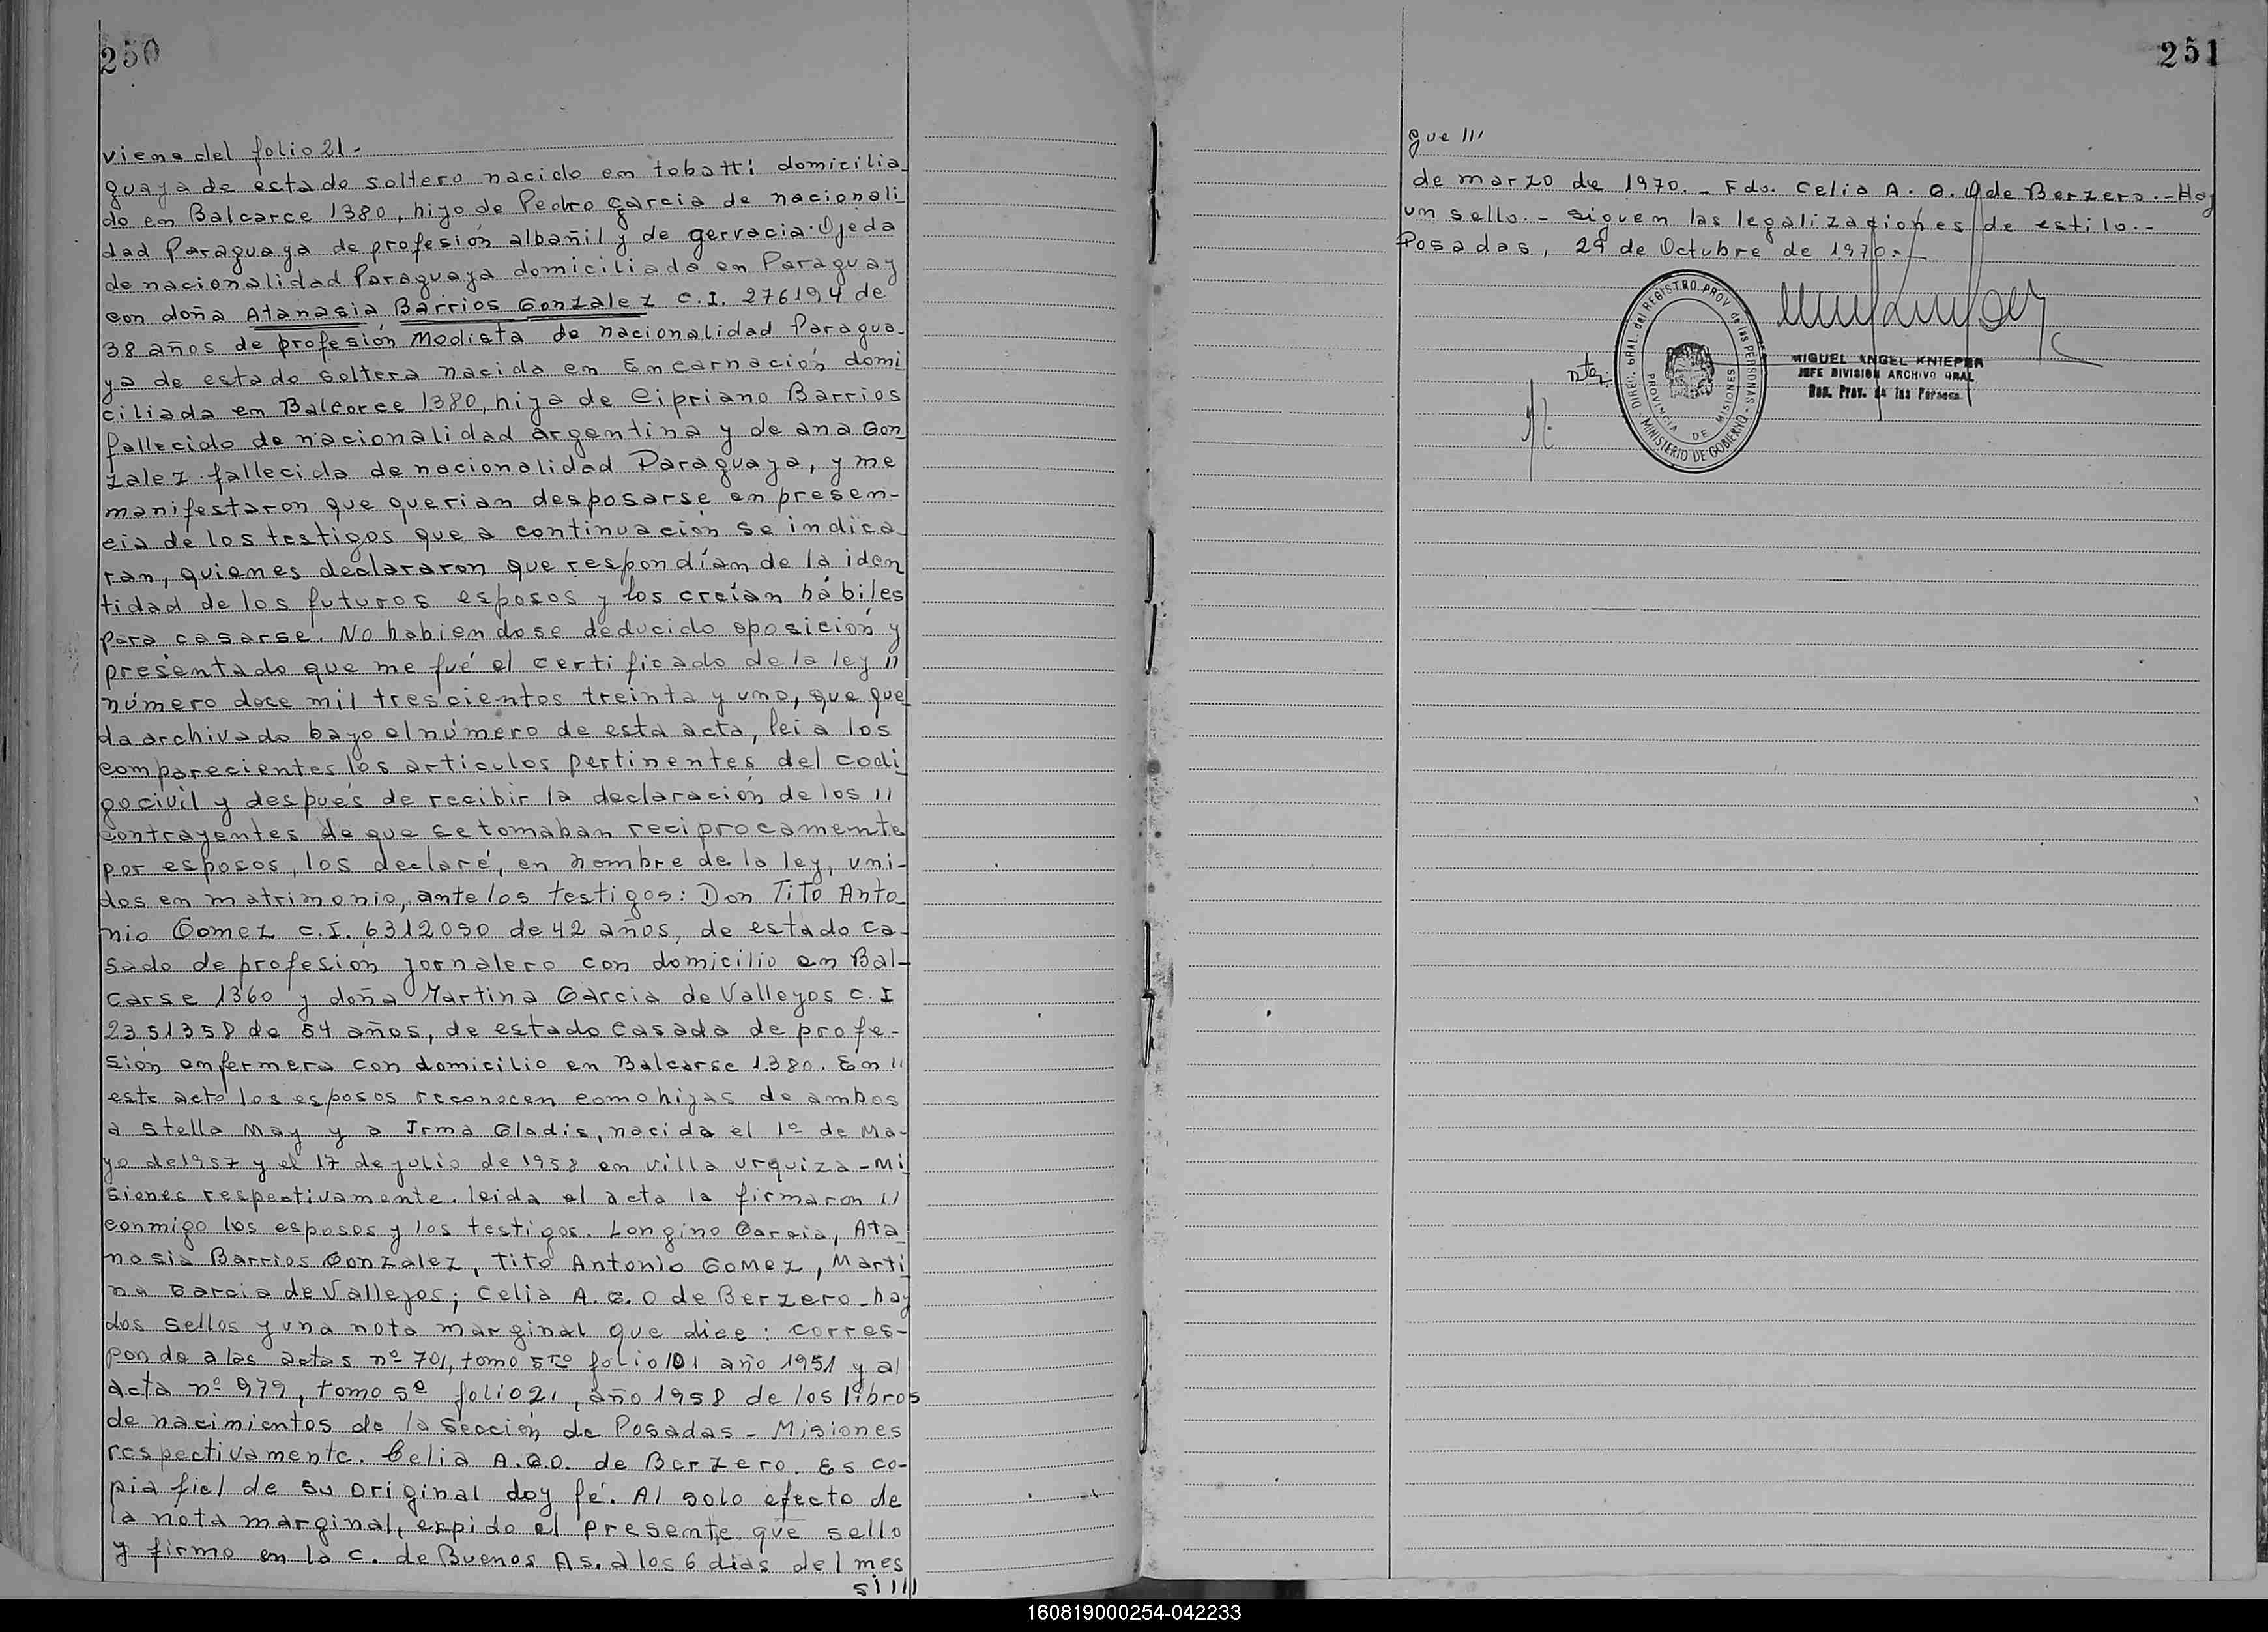 250
viene del folio 21.-
guaya de estado soltero nacido en tobatti domicilia
do en Balcarce 1380, hijo de Pedro Garcia de nacionali
dad Paraguaya de profesión albañil y de gervacia Ojeda
de nacionalidad Paraguaya domiciliada en Paraguay
con doña Atanasia Barrios Gonzalez C.I. 276194 de
38 años de profesión Modista de nacionalidad Paragua-
ya de estado soltera nacida en Encarnación domi
ciliada en Balcarce 1380, hija de Cipriano Barrios
fallecido de nacionalidad argentina y de ana Gon
zalez fallecida de nacionalidad Paraguaya, y me
manifestaron que querian desposarse en presen-
cia de los testigos que a continuación se indica
ran, quienes declararon que respondían de la iden
tidad de los futuros esposos y los creían hábiles
para casarse. No habiendose deducido oposición y
presentado que me fué el certificado de la ley //
número doce mil trescientos treinta y uno, que que
da archivado bajo el número de esta acta, lei a los
comparecientes los articulos pertinentes del codi
go civil y después de recibir la declaración de los //
contrayentes de que se tomaban reciprocamente
por esposos, los declaré, en nombre de la ley, uni-
dos en matrimonio, ante los testigos: Don Tito Anto
nio Gomez c.I. 6312090 de 42 años, de estado ca-
sado de profesion jornalero con domicilio en Bal-
carse 1360 y doña Martina Garcia de Vallejos c.I
2351358 de 54 años, de estado casada de profe-
sión enfermera con domicilio en Balcarse 1.380. En //
este acto los esposos reconocen como hijas de ambos
a Stella May y a Irma Gladis, nacida el 1º de Ma-
yo de 1957 y el 17 de julio de 1958 en villa urquiza - Mi
siones respectivamente. leida el acta la firmaron //
conmigo los esposos y los testigos. Longino Garcia, Ata
nasia Barrios Gonzalez, Tito Antonio Gomez, Marti
na Garcia de Vallejos; Celia A. G. O de Berzero - hay
dos sellos y una nota marginal que dice: corres-
ponde a las actas nº 701, tomo 5to folio 101 año 1951 y al
acta nº 979, tomo 5º folio 21, año 1958 de los libros
de nacimientos de la sección de Posadas - Misiones
respectivamente. Celia A.G.O. de Berzero. Es co-
pia fiel de su original doy fé. Al solo efecto de
la nota marginal, expido el presente que sello
y firmo en la c. de Buenos As. a los 6 dias del mes
si ///
251
gue ///
de marzo de 1970. - Fdo. Celia A. G. O de Berzero. - Hay
un sello. - siguen las legalizaciones de estilo. -
Posadas, 29 de Octubre de 1970. -
DIREC. GRAL. del REGISTRO. PROV de las PERSONAS - MINISTERIO DE GOBIERNO
PROVINCIA DE MISIONES
MIGUEL ANGEL KNIEPER
JEFE DIVISION ARCHIVO GRAL
Reg. Prov. de las Personas
160819000254-042233